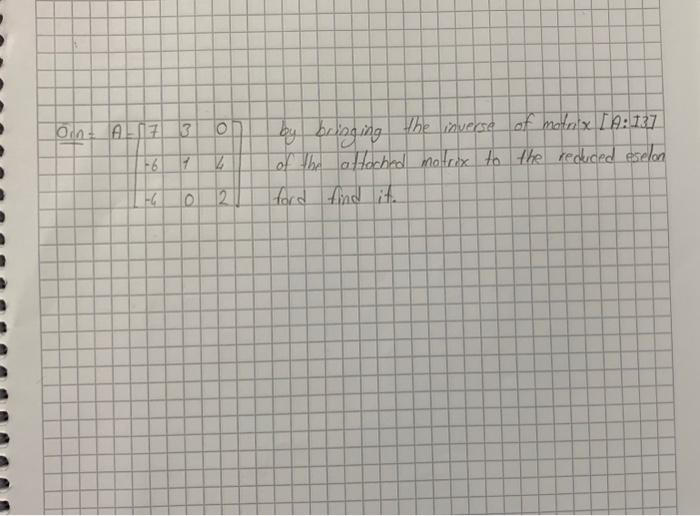 Örn= A=[7 3 0] by bringing the inverse of matrix [A:I3]
-6 1 4 of the attached matrix to the reduced eselon
-4 0 2 ford find it.